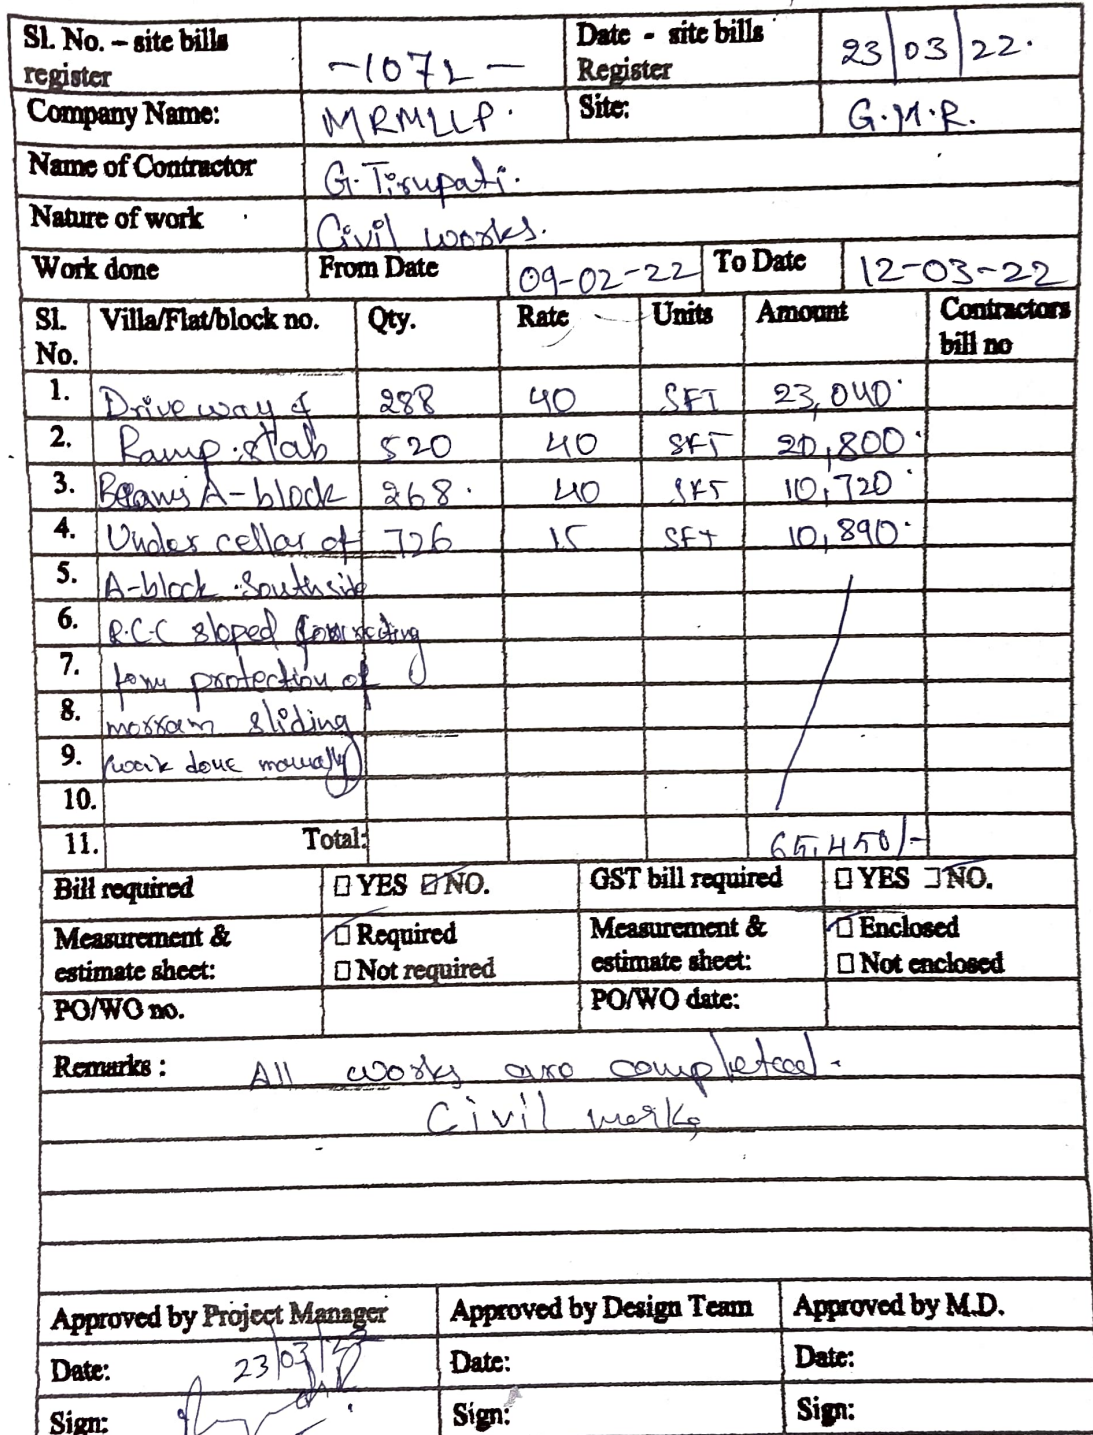 Sl. No. – site bills register -1072- Date - site bills Register 23/03/22.
Company Name: MRMLLP. Site: G.M.R.
Name of Contractor G. Tirupati.
Nature of work Civil works.
Work done From Date 09-02-22 To Date 12-03-22
Sl. No. Villa/Flat/block no. Qty. Rate Units Amount Contractors bill no
1. Drive way & 288 40 SFT 23,040
2. Ramp slab 520 40 SFT 20,800
3. Beams A-block 268. 40 SFT 10,720
4. Under cellar of 726 15 SFT 10,890
5. A-block Southside
6. R.C.C sloped
7. protection of
8. morram sliding
9. work done manually
10.
11. Total: 65,450/-
Bill required ☐ YES ☑ NO. GST bill required ☐ YES ☑ NO.
Measurement & estimate sheet: ☑ Required ☐ Not required Measurement & estimate sheet: ☑ Enclosed ☐ Not enclosed
PO/WO no. PO/WO date:
Remarks : All works are completed.
Civil works
Approved by Project Manager Approved by Design Team Approved by M.D.
Date: 23/03/22 Date: Date:
Sign: Sign: Sign: